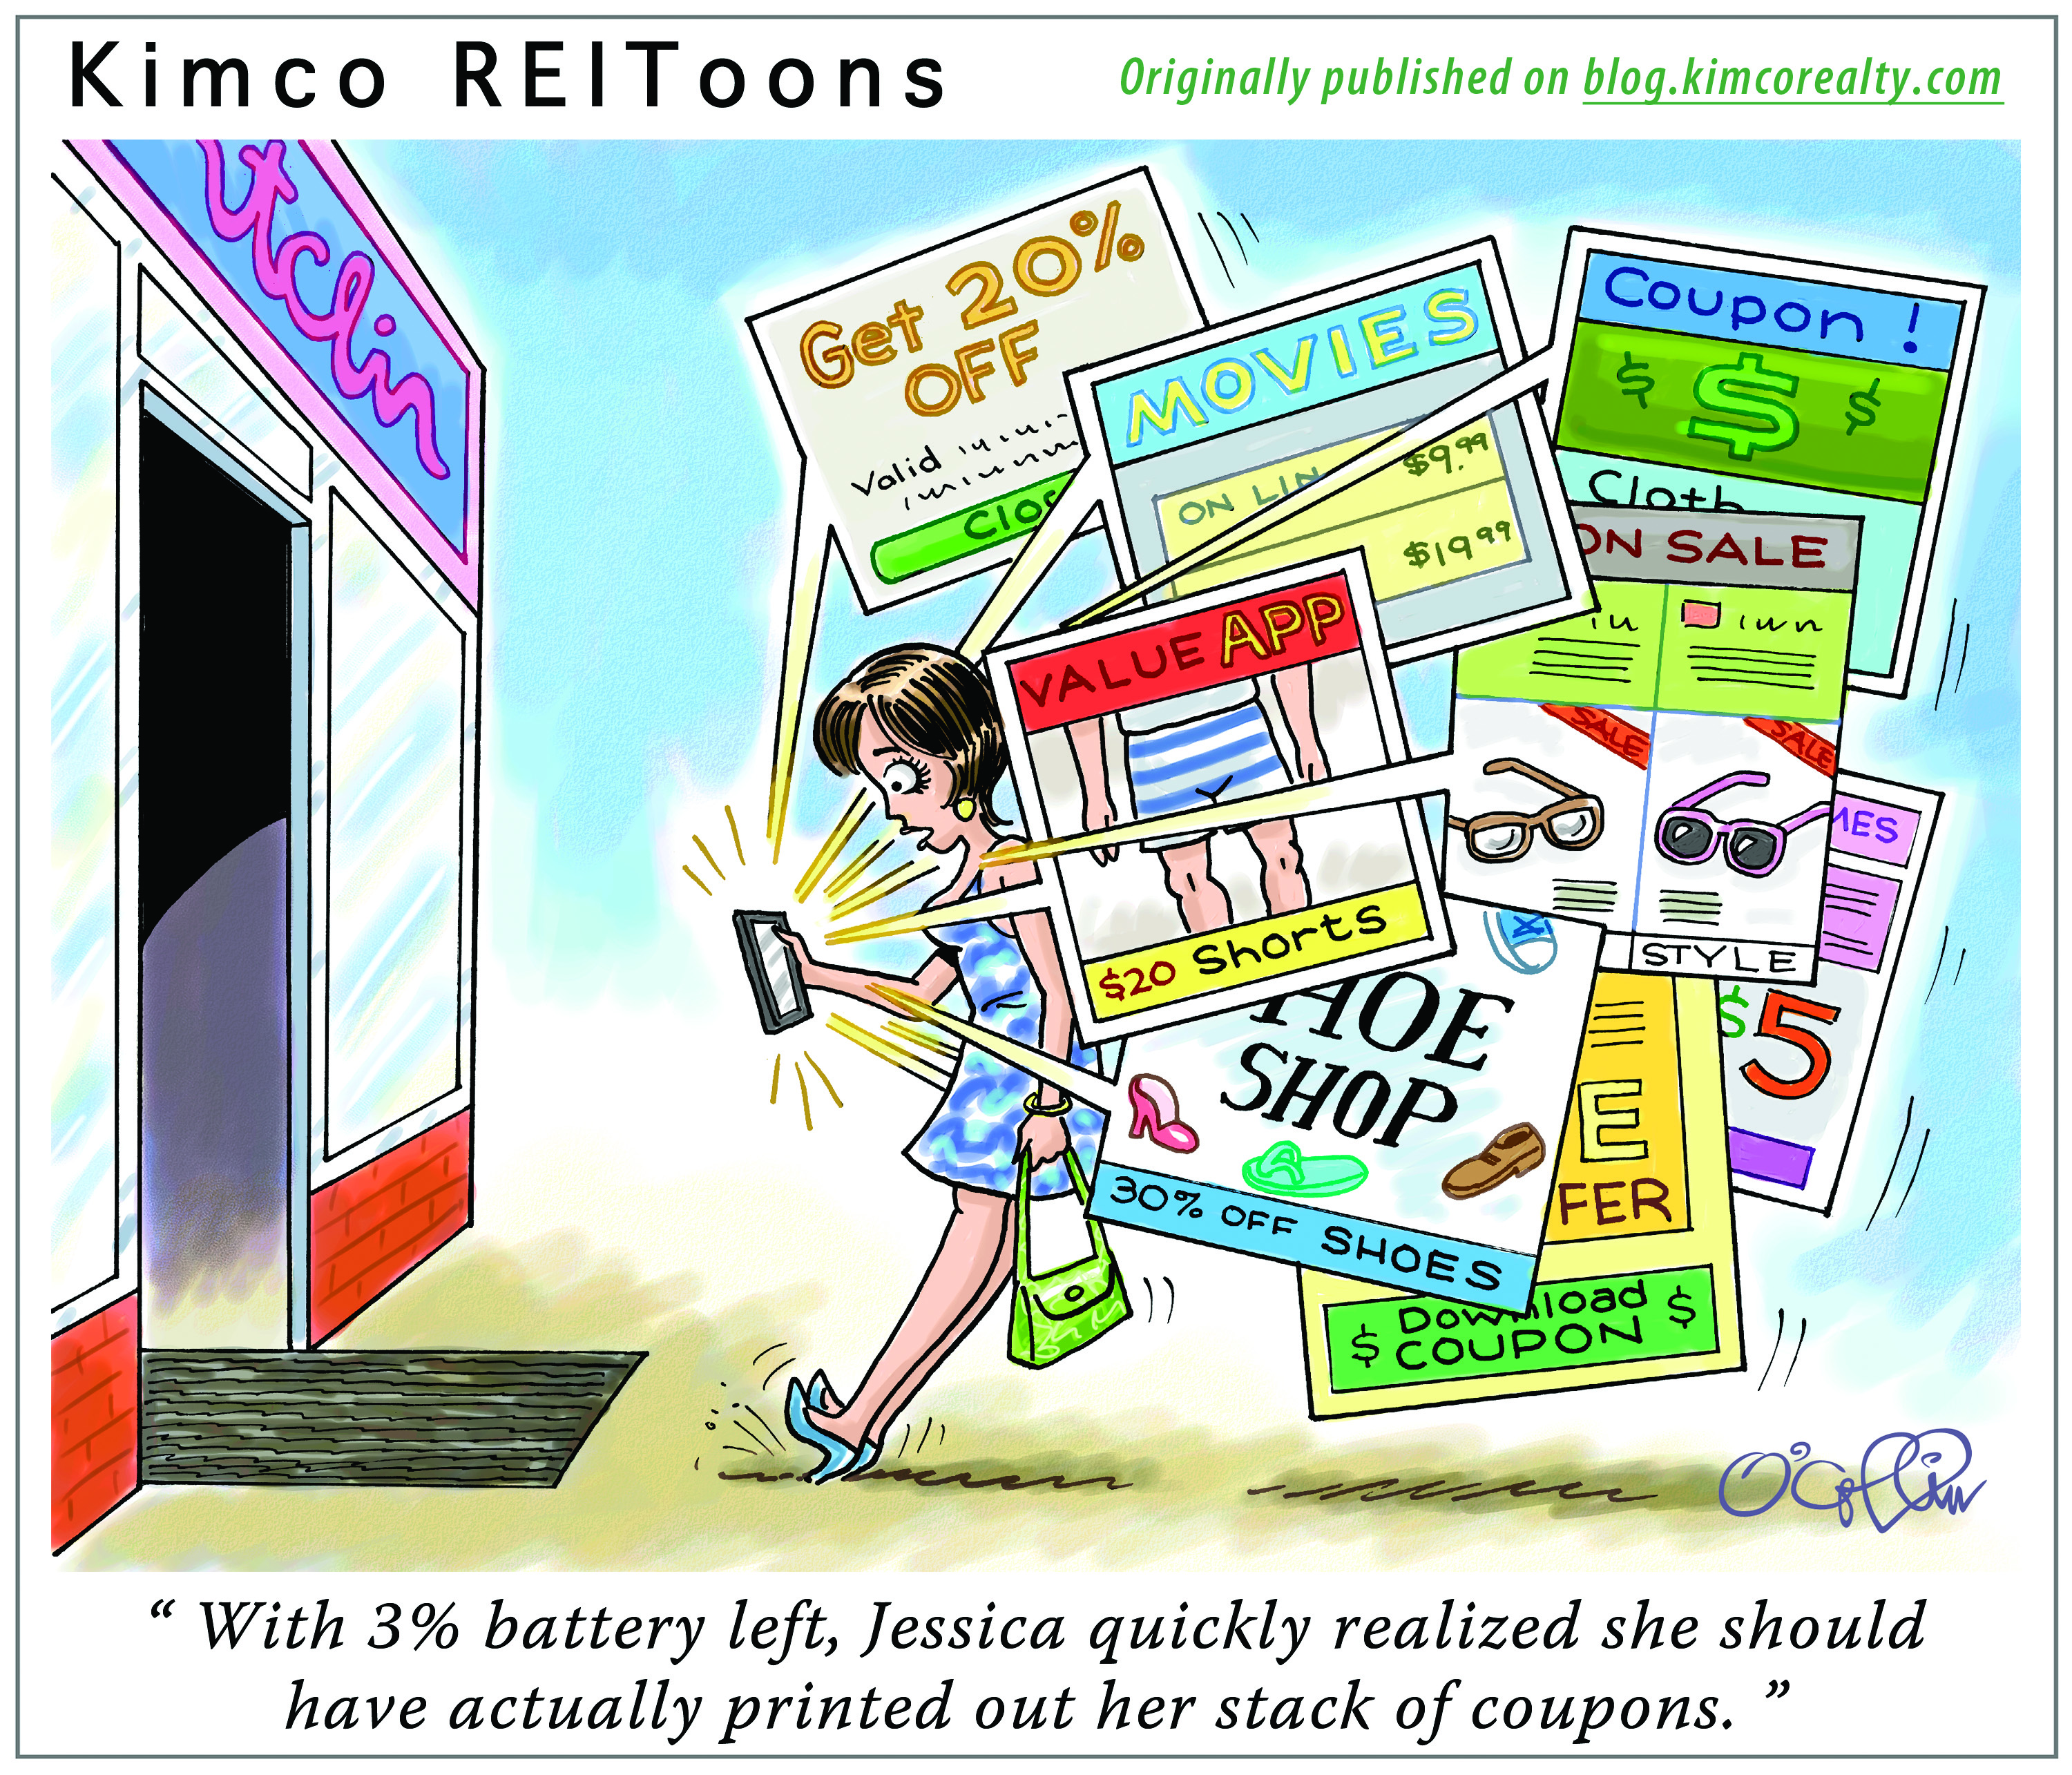 Kimco REIToons
Originally published on blog.kimcorealty.com
Get 20%
OFF
Valid
MOVIES
ON LIN
$9.99
$19.99
Coupon !
$ $ $
Cloth
ON SALE
SALE
SALE
STYLE
VALUE APP
$20 Shorts
MES
$5
HOE
SHOP
30% OFF SHOES
E
FER
$ Download $
COUPON
“ With 3% battery left, Jessica quickly realized she should
have actually printed out her stack of coupons. ”